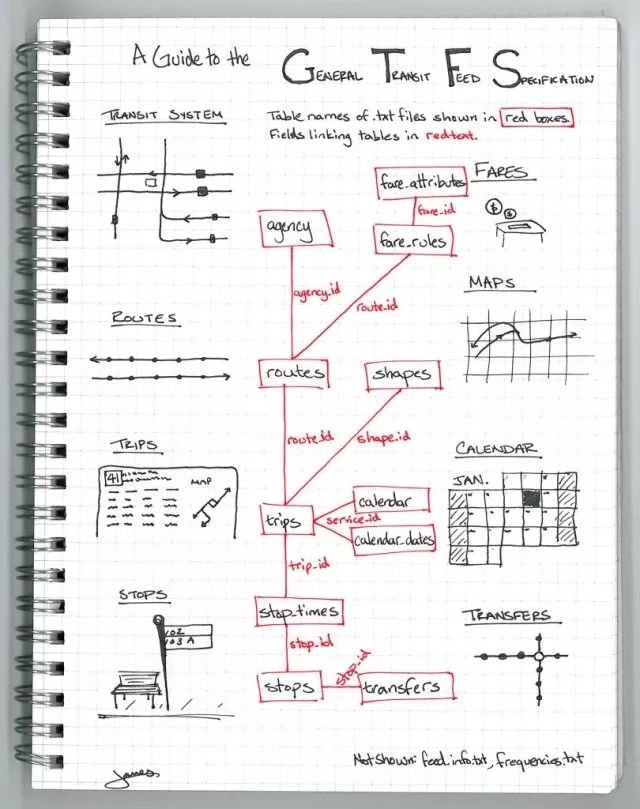 A Guide to the GENERAL TRANSIT FEED SPECIFICATION
Table names of .txt files shown in red boxes.
Fields linking tables in red text.
TRANSIT SYSTEM
fare_attributes
FARES
fare_id
$ $
agency
fare_rules
agency_id
route_id
MAPS
ROUTES
routes
shapes
route_id
shape_id
TRIPS
41
MAP
CALENDAR
JAN.
calendar
trips
service_id
calendar_dates
trip_id
STOPS
102
103 A
stop_times
TRANSFERS
stop_id
stop_id
stops
transfers
Not Shown: feed_info.txt, frequencies.txt
James